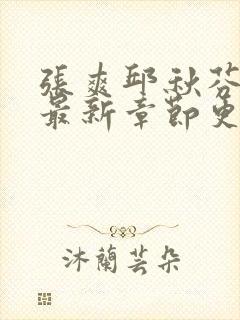 張爽邱秋芬
最新章節更
沐蘭芸朵